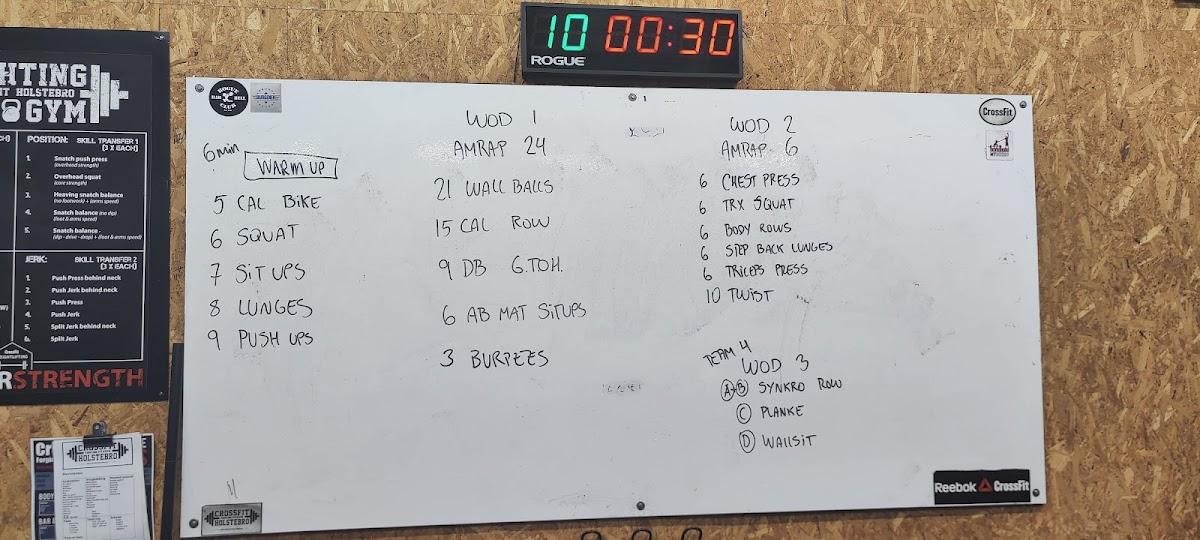 10 00:30
ROGUE
HTING
IT HOLSTEBRO
GYM
POSITION: SKILL TRANSFER 1
(3 X EACH)
1. Snatch push press
(overhead strength)
2. Overhead squat
(core strength)
3. Heaving snatch balance
(no footwork) + (arms speed)
4. Snatch balance (no dip)
(foot & arms speed)
5. Snatch balance
(dip - drive - drop) + (foot & arms speed)
JERK: SKILL TRANSFER 2
(3 X EACH)
1. Push Press behind neck
2. Push Jerk behind neck
3. Push Press
4. Push Jerk
5. Split Jerk behind neck
6. Split Jerk
RSTRENGTH
CROSSFIT
HOLSTEBRO
ROGUE
BAR BELL
CLUB
6 min
WARM UP
5 CAL BIKE
6 SQUAT
7 SIT UPS
8 LUNGES
9 PUSH UPS
WOD 1
AMRAP 24
21 WALL BALLS
15 CAL ROW
9 DB G.TOH.
6 AB MAT SITUPS
3 BURPEES
WOD 2
AMRAP 6
6 CHEST PRESS
6 TRX SQUAT
6 BODY ROWS
6 STEP BACK LUNGES
6 TRICEPS PRESS
10 TWIST
TEAM 4
WOD 3
A+B SYNKRO ROW
C PLANKE
D WALLSIT
CrossFit
CROSSFIT
HOLSTEBRO
Reebok CrossFit